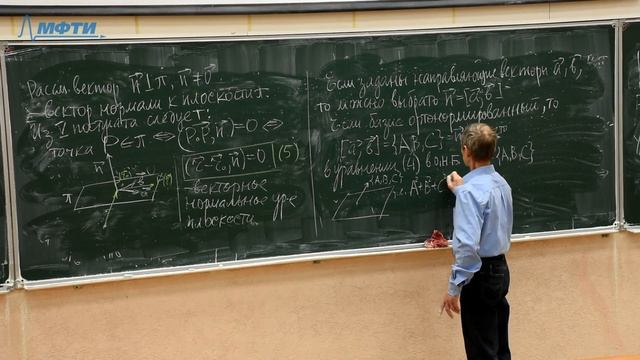 МФТИ
Рассм. вектор n⊥π, n≠0
– вектор нормали к плоскости.
Из I постулата следует:
точка P∈π ⇔ (P₀P, n)=0 ⇔
(r-r₀, n)=0 (5)
– векторное
нормальное ур-е
плоскости
n
π
Если заданы направляющие векторы a, b,
то можно выбрать n=[a,b]
Если базис ортонормированный, то
[a,b]={A,B,C}
в уравнении (4) в ОНБ {A,B,C}
{A,B,C}
т.е. A+B+